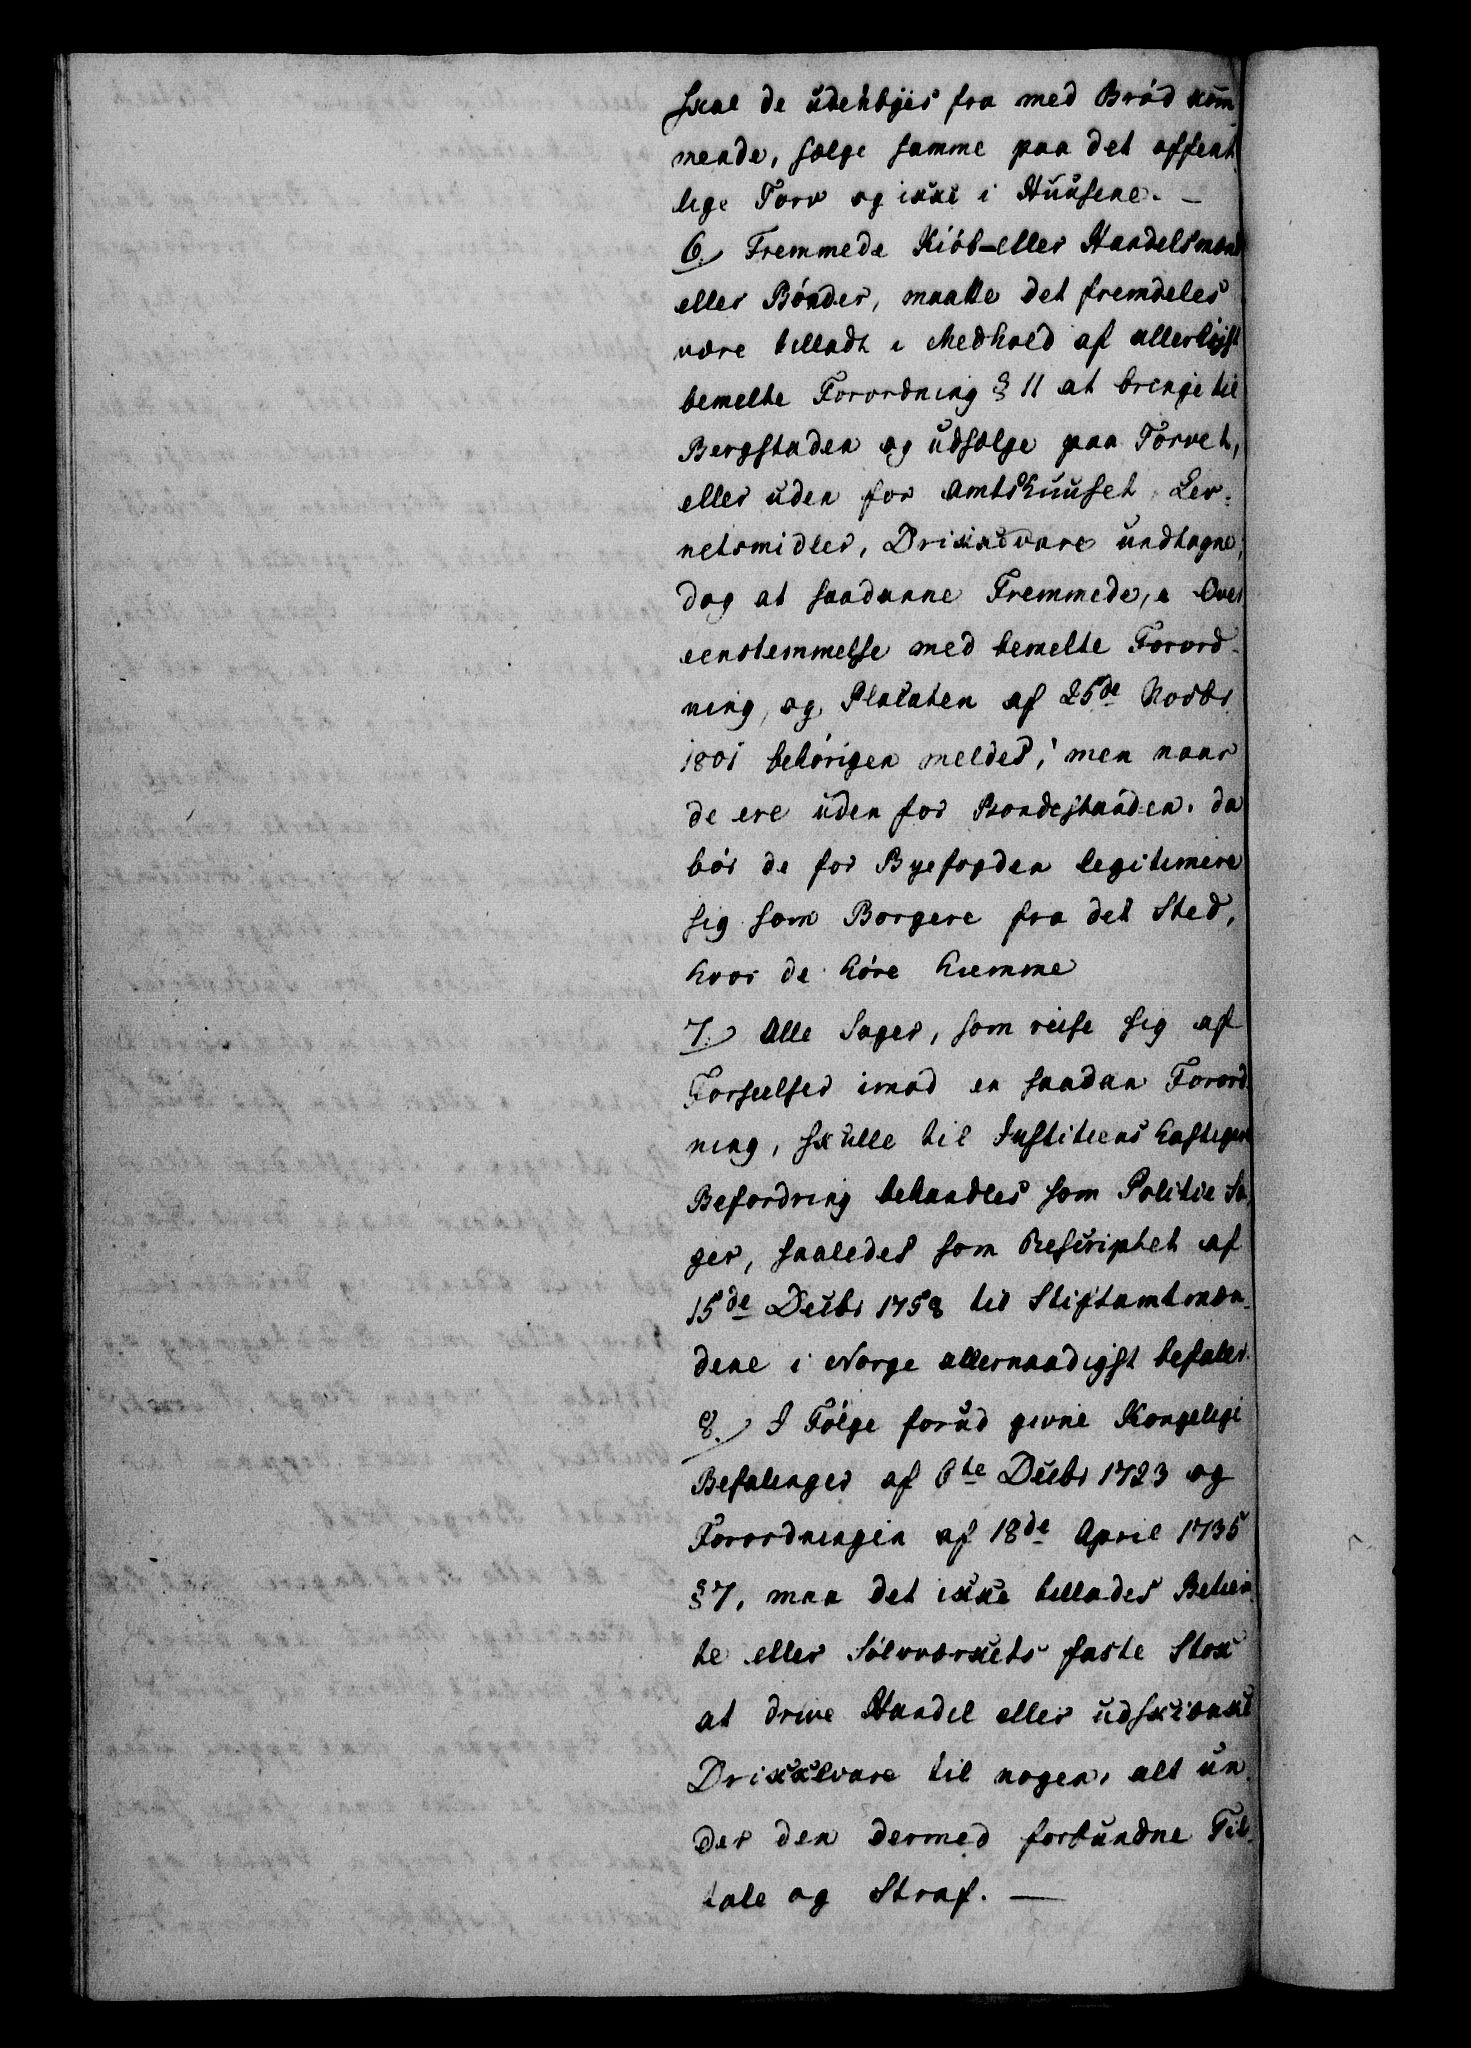 skal de udenbÿes fra med Brød kom-
mende, sælge samme paa det offent-
lige Torv og ikke i Huusene. —
6./ Fremmede Kiøb- eller Handelsmænd
eller Bønder, maatte det fremdeles
være tilladt i Medhold af allerhøist
bemelte Forordning § 11 at bringe til
Bergstaden og udsælge paa Torvet,
eller uden for Amtshuuset, Lev-
netsmidler, Drikkevare undtagne;
dog at saadanne Fremmede, i Over
eenstemmelse med bemelte Forord-
ning, og Placaten af 25de Novbr
1801 behørigen meldes; men naar
de ere uden for Bondestanden, da
bør de for Byefogden legitimere
sig som Borgere fra det Sted,
hvor de høre hiemme
7./ Alle Sager, som reise sig af
Forseelser imod en saadan Forord
ning, skulle til Justitiens hastigere
Befordring behandles som Politie Sa-
ger, saaledes som Rescriptet af
15de Decbr 1758 til Stiftamtmæn-
dene i Norge allernaadigst befaler.
8./ I Følge forud givne Kongelige
Befalinger af 6te Decbr 1723 og
Forordningen af 18de April 1735
§ 7, maa det ikke tillades Betien
te eller Sølvværkets faste Stok
at drive Handel eller udskiænke
Drikkevare til nogen, alt un-
der den dermed forbundne Til-
tale og Straf. —